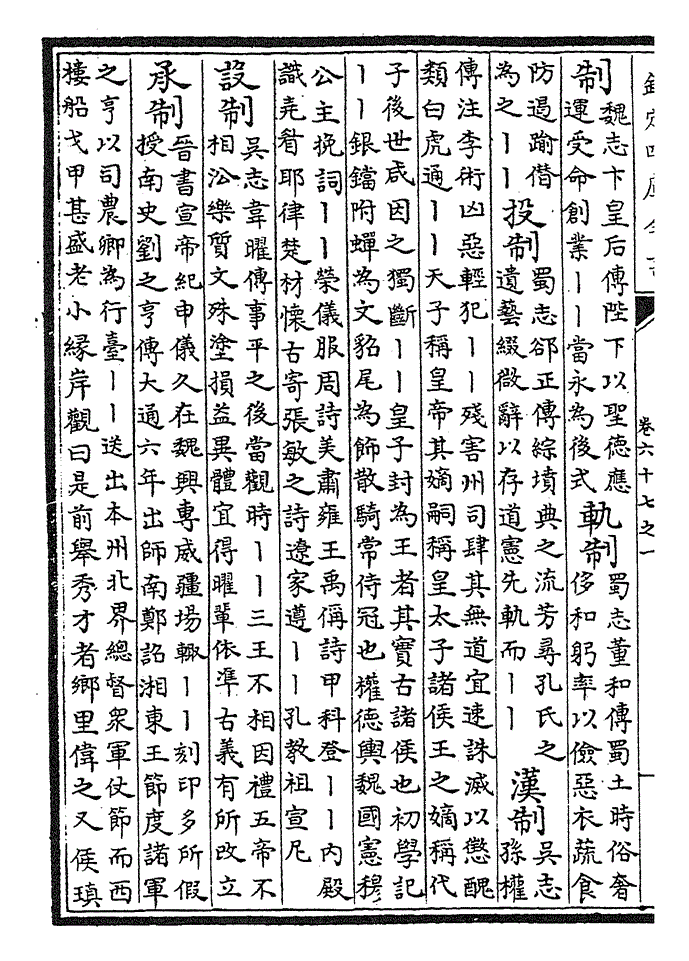 欽定四庫全書
卷六十七之一
制
魏志卞皇后傳陛下以聖德應
運受命創業丨丨當永為後式
軌制
蜀志董和傳蜀土時俗奢
侈和躬率以儉惡衣蔬食
防遏踰僭
為之丨丨
投制
蜀志郤正傳綜墳典之流芳尋孔氏之
遺藝綴微辭以存道憲先軌而丨丨
漢制
吳志
孫權
傳注李術凶惡輕犯丨丨殘害州司肆其無道宜速誅滅以懲醜
類白虎通丨丨天子稱皇帝其嫡嗣稱皇太子諸侯王之嫡稱代
子後世咸因之獨斷丨丨皇子封為王者其實古諸侯也初學記
丨丨銀鐺附蟬為文貂尾為飾散騎常侍冠也權德輿魏國憲穆
公主挽詞丨丨榮儀服周詩美肅雍王禹偁詩甲科登丨丨內殿
識堯眉耶律楚材懷古寄張敏之詩遼家遵丨丨孔教祖宣尼
設制
吳志韋曜傳事平之後當觀時丨丨三王不相因禮五帝不
相沿樂質文殊塗損益異體宜得曜輩依準古義有所改立
承制
晉書宣帝紀申儀久在魏興專威疆場輙丨丨刻印多所假
授南史劉之亨傳大通六年出師南鄭詔湘東王節度諸軍
之亨以司農卿為行臺丨丨送出本州北界總督衆軍仗節而西
樓船戈甲甚盛老小緣岸觀曰是前舉秀才者鄉里偉之又侯瑱